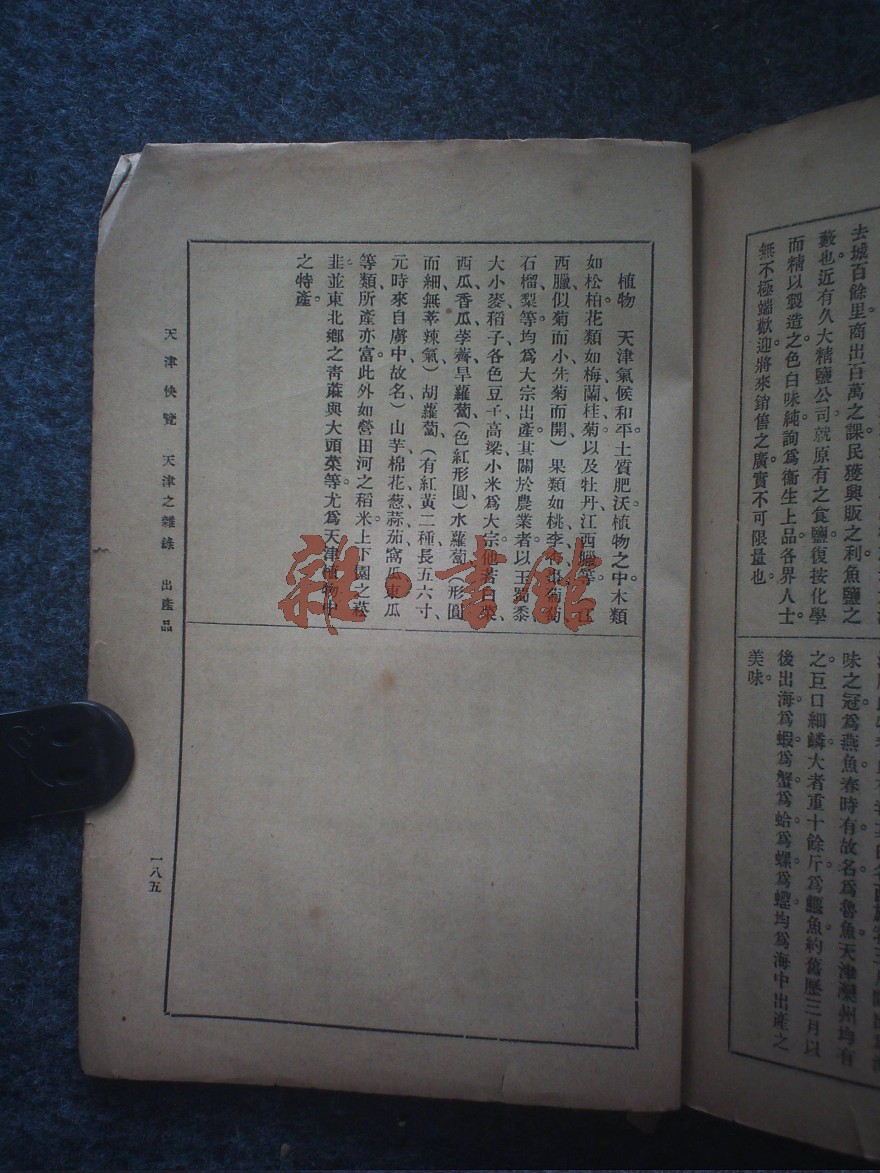 去城百餘里商出百萬之課民獲興販之利魚鹽之
藪也近有久大精鹽公司就原有之食鹽復按化學
而精以製造之色白味純詢爲衞生上品各界人士
無不極端歡迎將來銷售之廣實不可限量也。
味之冠爲燕魚春時有故名爲魯魚天津灤州均有
之巨口細鱗大者重十餘斤爲鱷魚約舊歷三月以
後出海爲蝦爲蟹爲蛤爲螺爲蟶均爲海中出產之
美味。
植物 天津氣候和平土質肥沃植物之中木類
如松柏花類如梅蘭桂菊以及牡丹江西臘等(江
西臘似菊而小先菊而開)果類如桃李
石榴梨等均爲大宗出產其關於農業者以玉蜀黍
大小麥稻子各色豆子高粱小米爲大宗他若白菜
西瓜香瓜荸薺旱蘿蔔(色紅形圓)水蘿蔔(形圓
而細無莘辣氣)胡蘿蔔(有紅黃二種長五六寸、
元時來自虜中故名)山芋棉花葱蒜茄窩瓜東瓜
等類所產亦富此外如營田河之稻米上下園之菘
韭並東北鄉之青蔴與大頭菜等尤爲天津植物中
之特產。
天津快覽 天津之雜錄 出產品
一八五
雜·書館